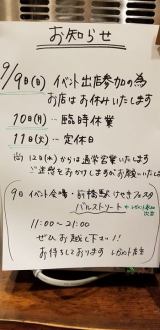 お知らせ
9/9日(日) イベント出店参加の為
お店はお休みいたします
10日(月)…臨時休業
11日(火)…定休日
尚 12日(水)からは通常営業いたします
ご迷惑をおかけしますがお願いいたし
9日 イベント会場・前橋駅 けやきフェスタ
バルストリート
11:00〜21:00
ぜひお越し下さい!!
お待ちしております